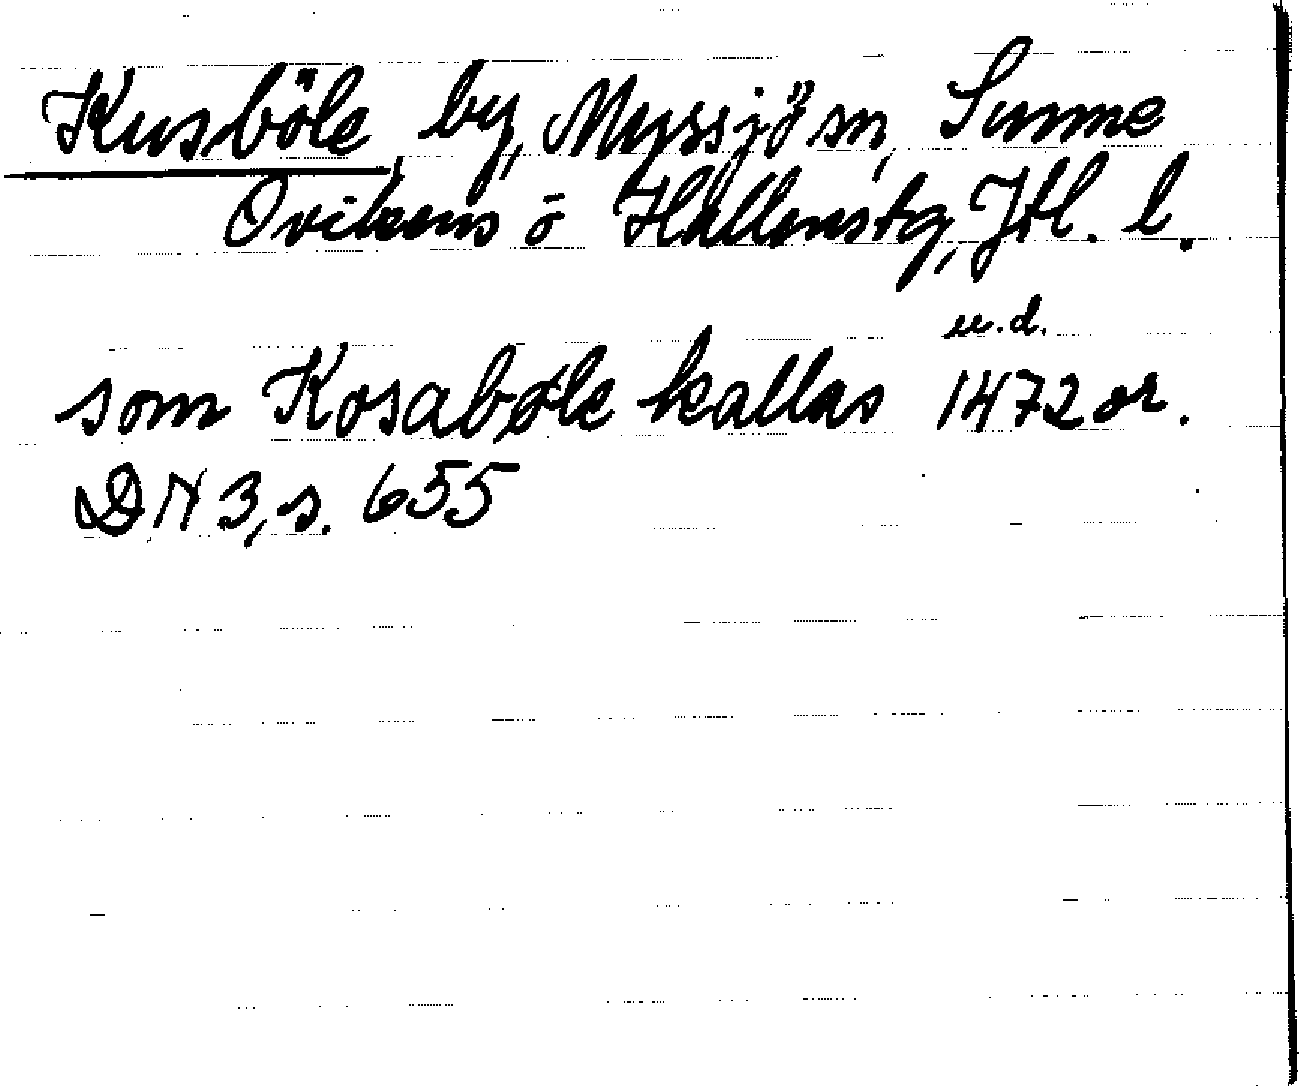 Kusböle, by, Myssjö sn, Sunne
Ovikens o Hallenstg, Jtl. l.
u.d.
som Kosabøle kallas 1472 or.
DN 3, s. 655